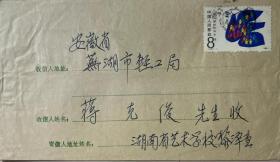 安徽省
收信人地址：芜湖市轻工局
收信人姓名：蒋克俊先生收
寄信人地址姓名：湖南省艺术学校
8分
中国人民邮政